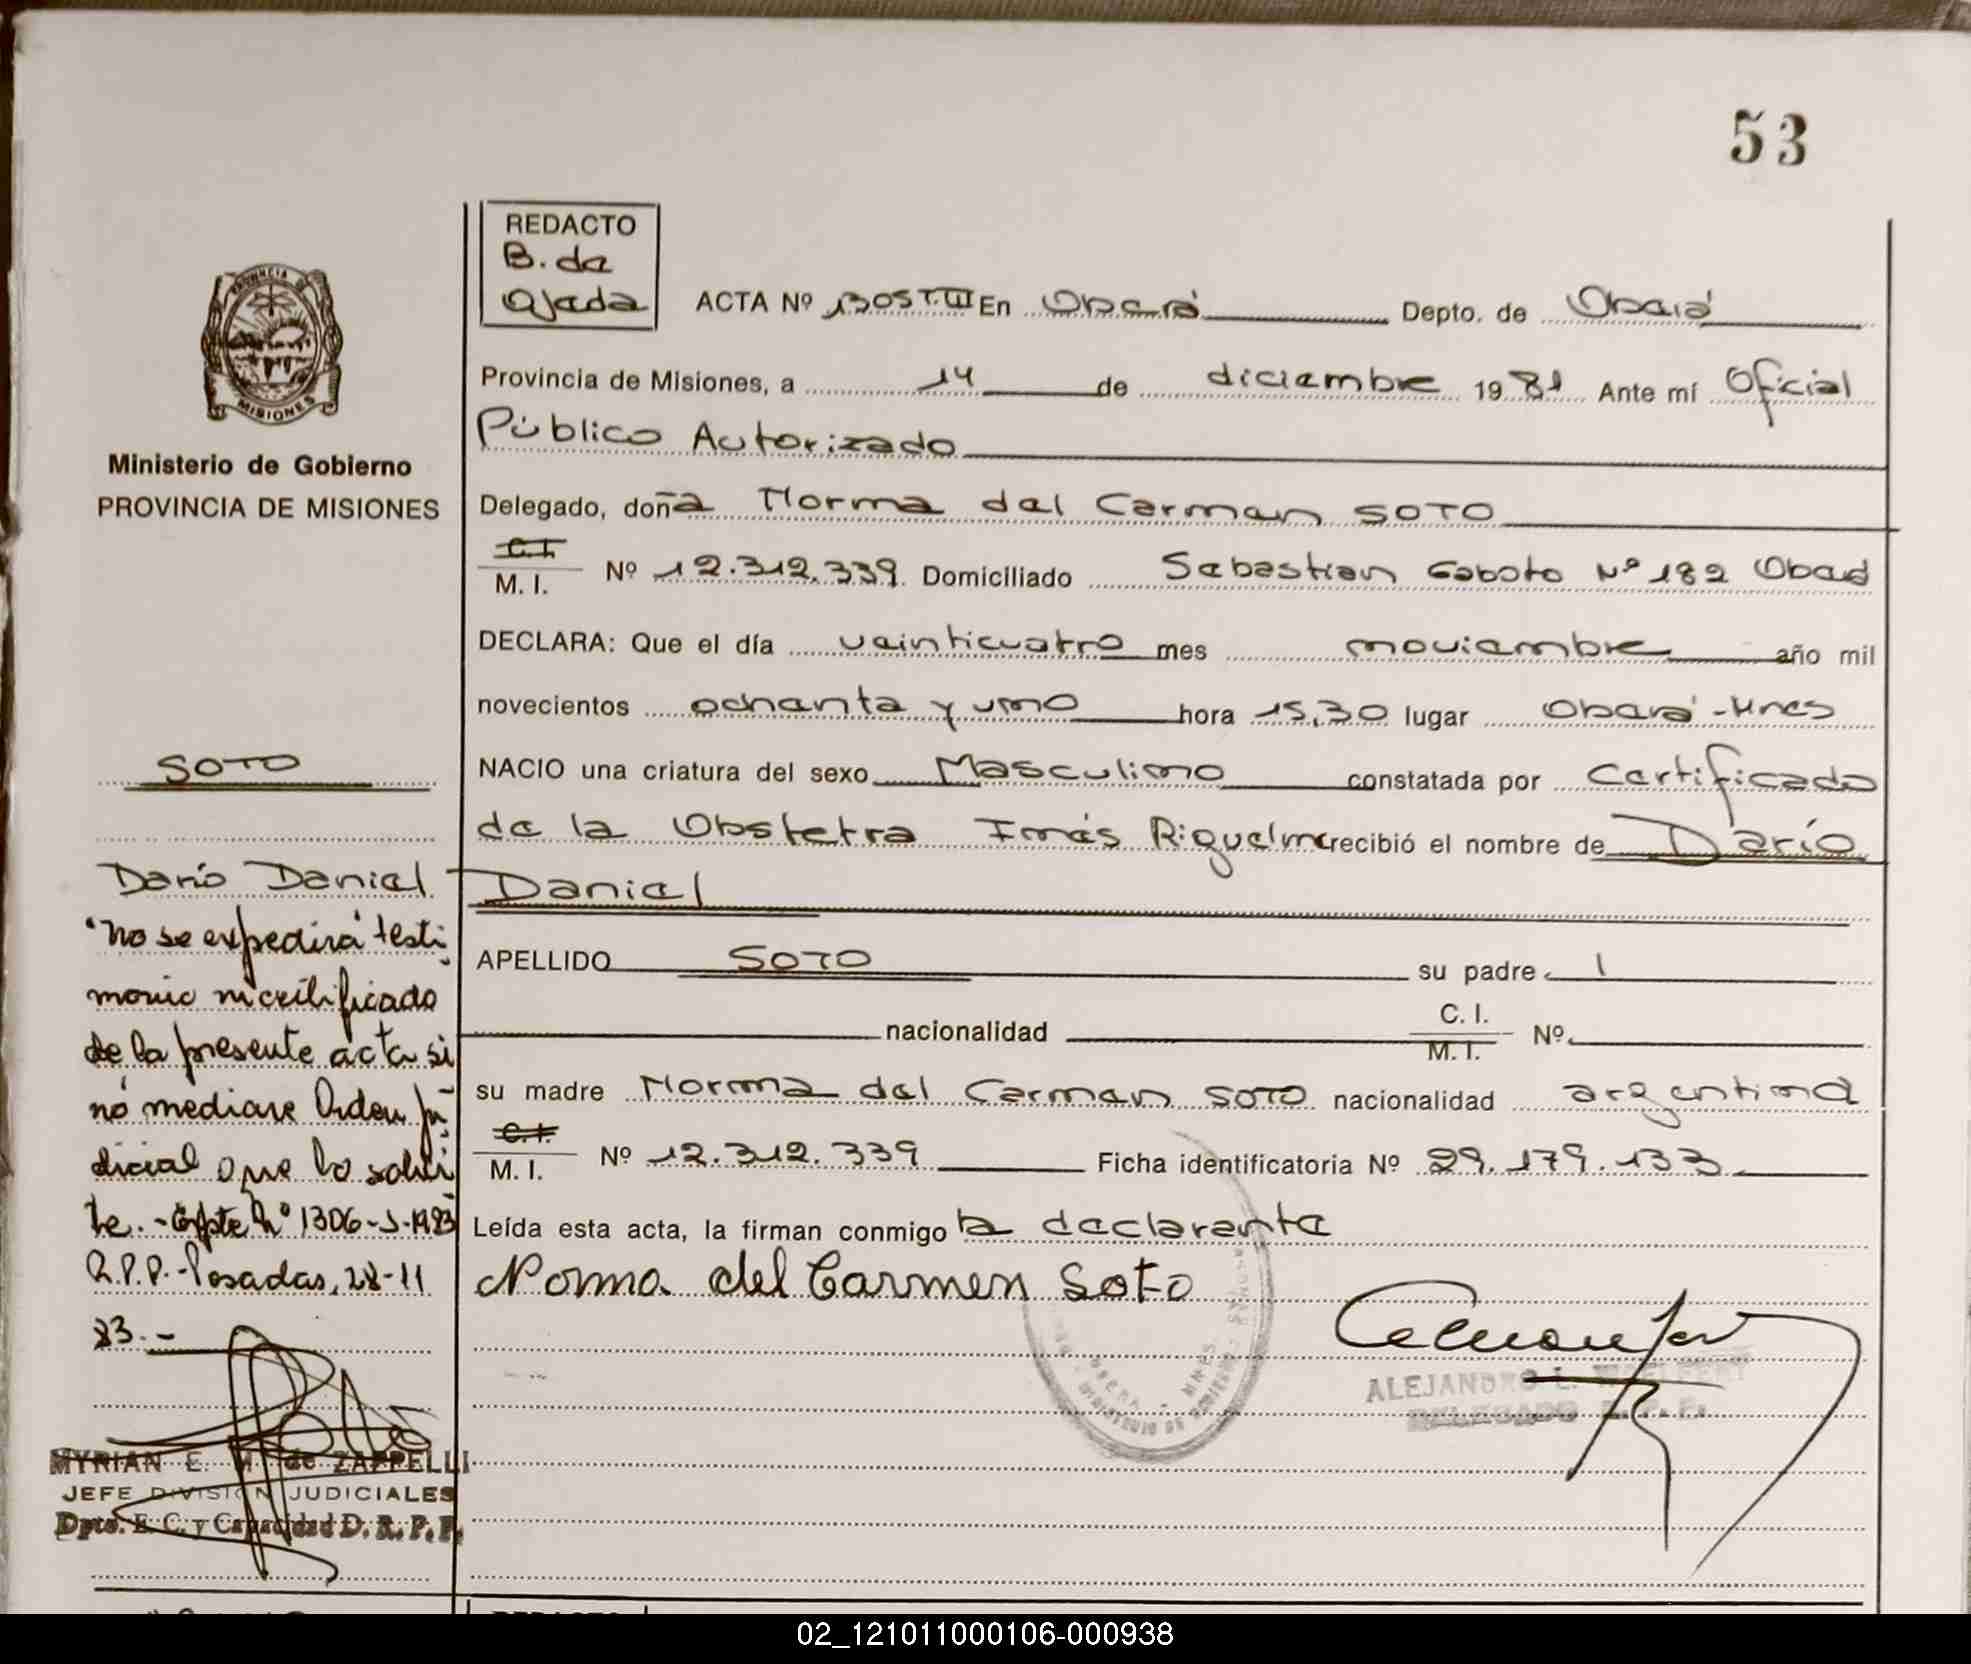 53
REDACTO
B. de
Ojeda
ACTA Nº 1305 T. III En Oberá Depto. de Oberá
PROVINCIA DE
MISIONES
Provincia de Misiones, a 14 de diciembre 1981 Ante mí Oficial
Público Autorizado
Ministerio de Gobierno
PROVINCIA DE MISIONES
Delegado, doña Norma del Carmen SOTO
C.I.
M. I. Nº 12.312.339 Domiciliado Sebastian Gaboto Nº 182 Oberá
DECLARA: Que el día veinticuatro mes noviembre año mil
novecientos ochenta y uno hora 15,30 lugar Oberá - Mnes
SOTO
NACIO una criatura del sexo Masculino constatada por Certificado
de la Obstetra Inés Riquelme recibió el nombre de Darío
Daniel
Darío Daniel
"No se expedirá testi
monio ni certificado
de la presente acta si
no mediare Orden ju
dicial que lo solici
te.- Expte Nº 1306-S-1983
R.P.P.- Posadas, 28-11
83.-
APELLIDO SOTO su padre
nacionalidad C. I.
M. I. Nº
su madre Norma del Carmen SOTO nacionalidad argentina
C.I.
M. I. Nº 12.312.339 Ficha identificatoria Nº 29.179.133
Leída esta acta, la firman conmigo la declarante
Norma del Carmen Soto
ALEJANDRO L.
DELEGADO R. P. P.
OBERA - MNES.
MINISTERIO DE GOBIERNO
MYRIAN E. M. de ZAPPELLI
JEFE DIVISION JUDICIALES
Dpto. E. C. y Capacidad D. R. P. P.
REDACTO
02_121011000106-000938